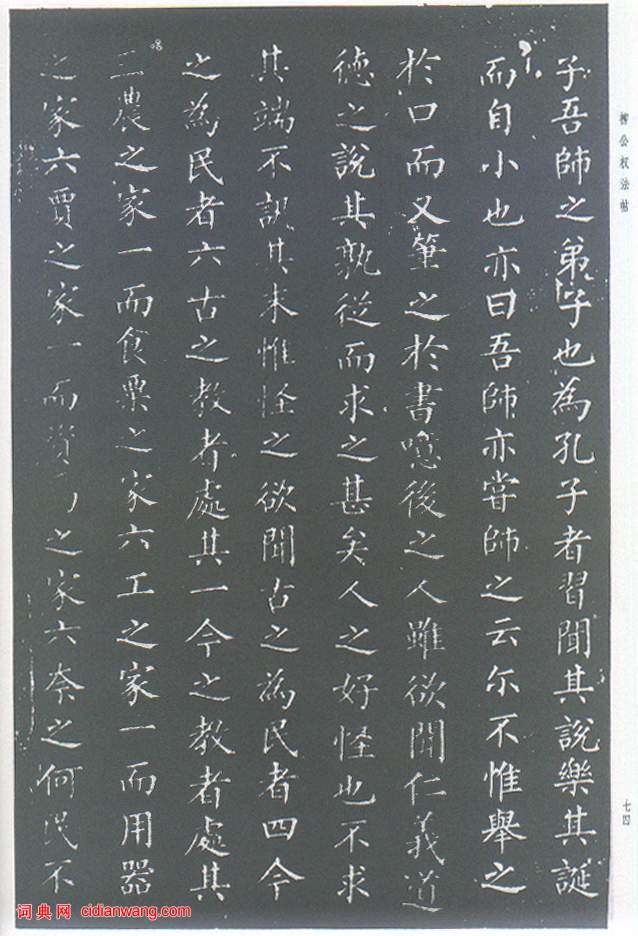 柳公权法帖
子吾師之弟子也為孔子者習聞其說樂其誕
而自小也亦曰吾師亦嘗師之云尒不惟舉之
於口而又筆之於書噫後之人雖欲聞仁義道
德之說其孰從而求之甚矣人之好怪也不求
其端不訊其末惟怪之欲聞古之為民者四今
之為民者六古之教者處其一今之教者處其
三農之家一而食粟之家六工之家一而用器
之家六賈之家一而資之家六奈之何民不
七四
词典网 cidianwang.com